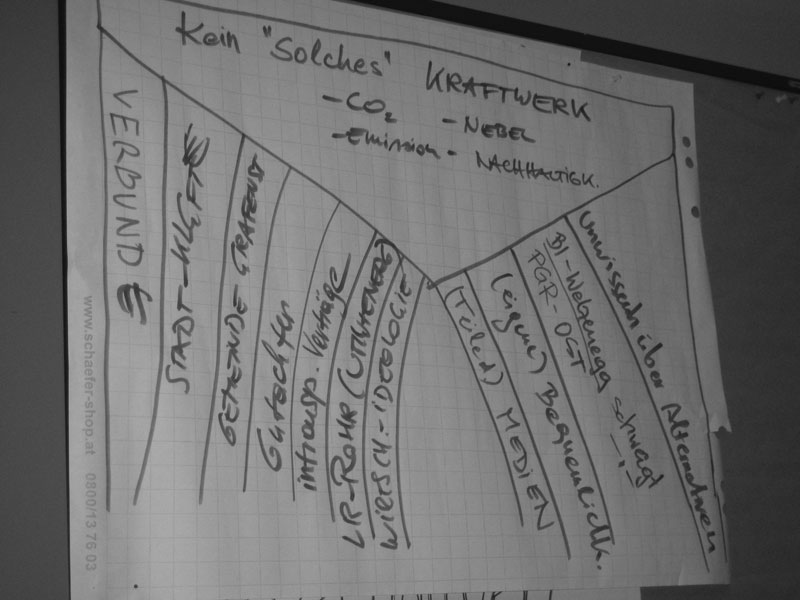 Kein "Solches" KRAFTWERK
- CO₂ - NEBEL
- Emission - NACHHALTIGK.
VERBUND
STADT-KLGFT
GEMEINDE GRAFENST
Gutachter
intransp. Verträge
LR-ROHR (UTHHENERG)
WIRTSCH.-IDEOLOGIE
(Teile d) MEDIEN
(eigene) Bequemlichk.
BI-Welzenegg schweigt
PGR-OST !
Unwissen über Alternativen
www.schaefer-shop.at 0800/13 76 03